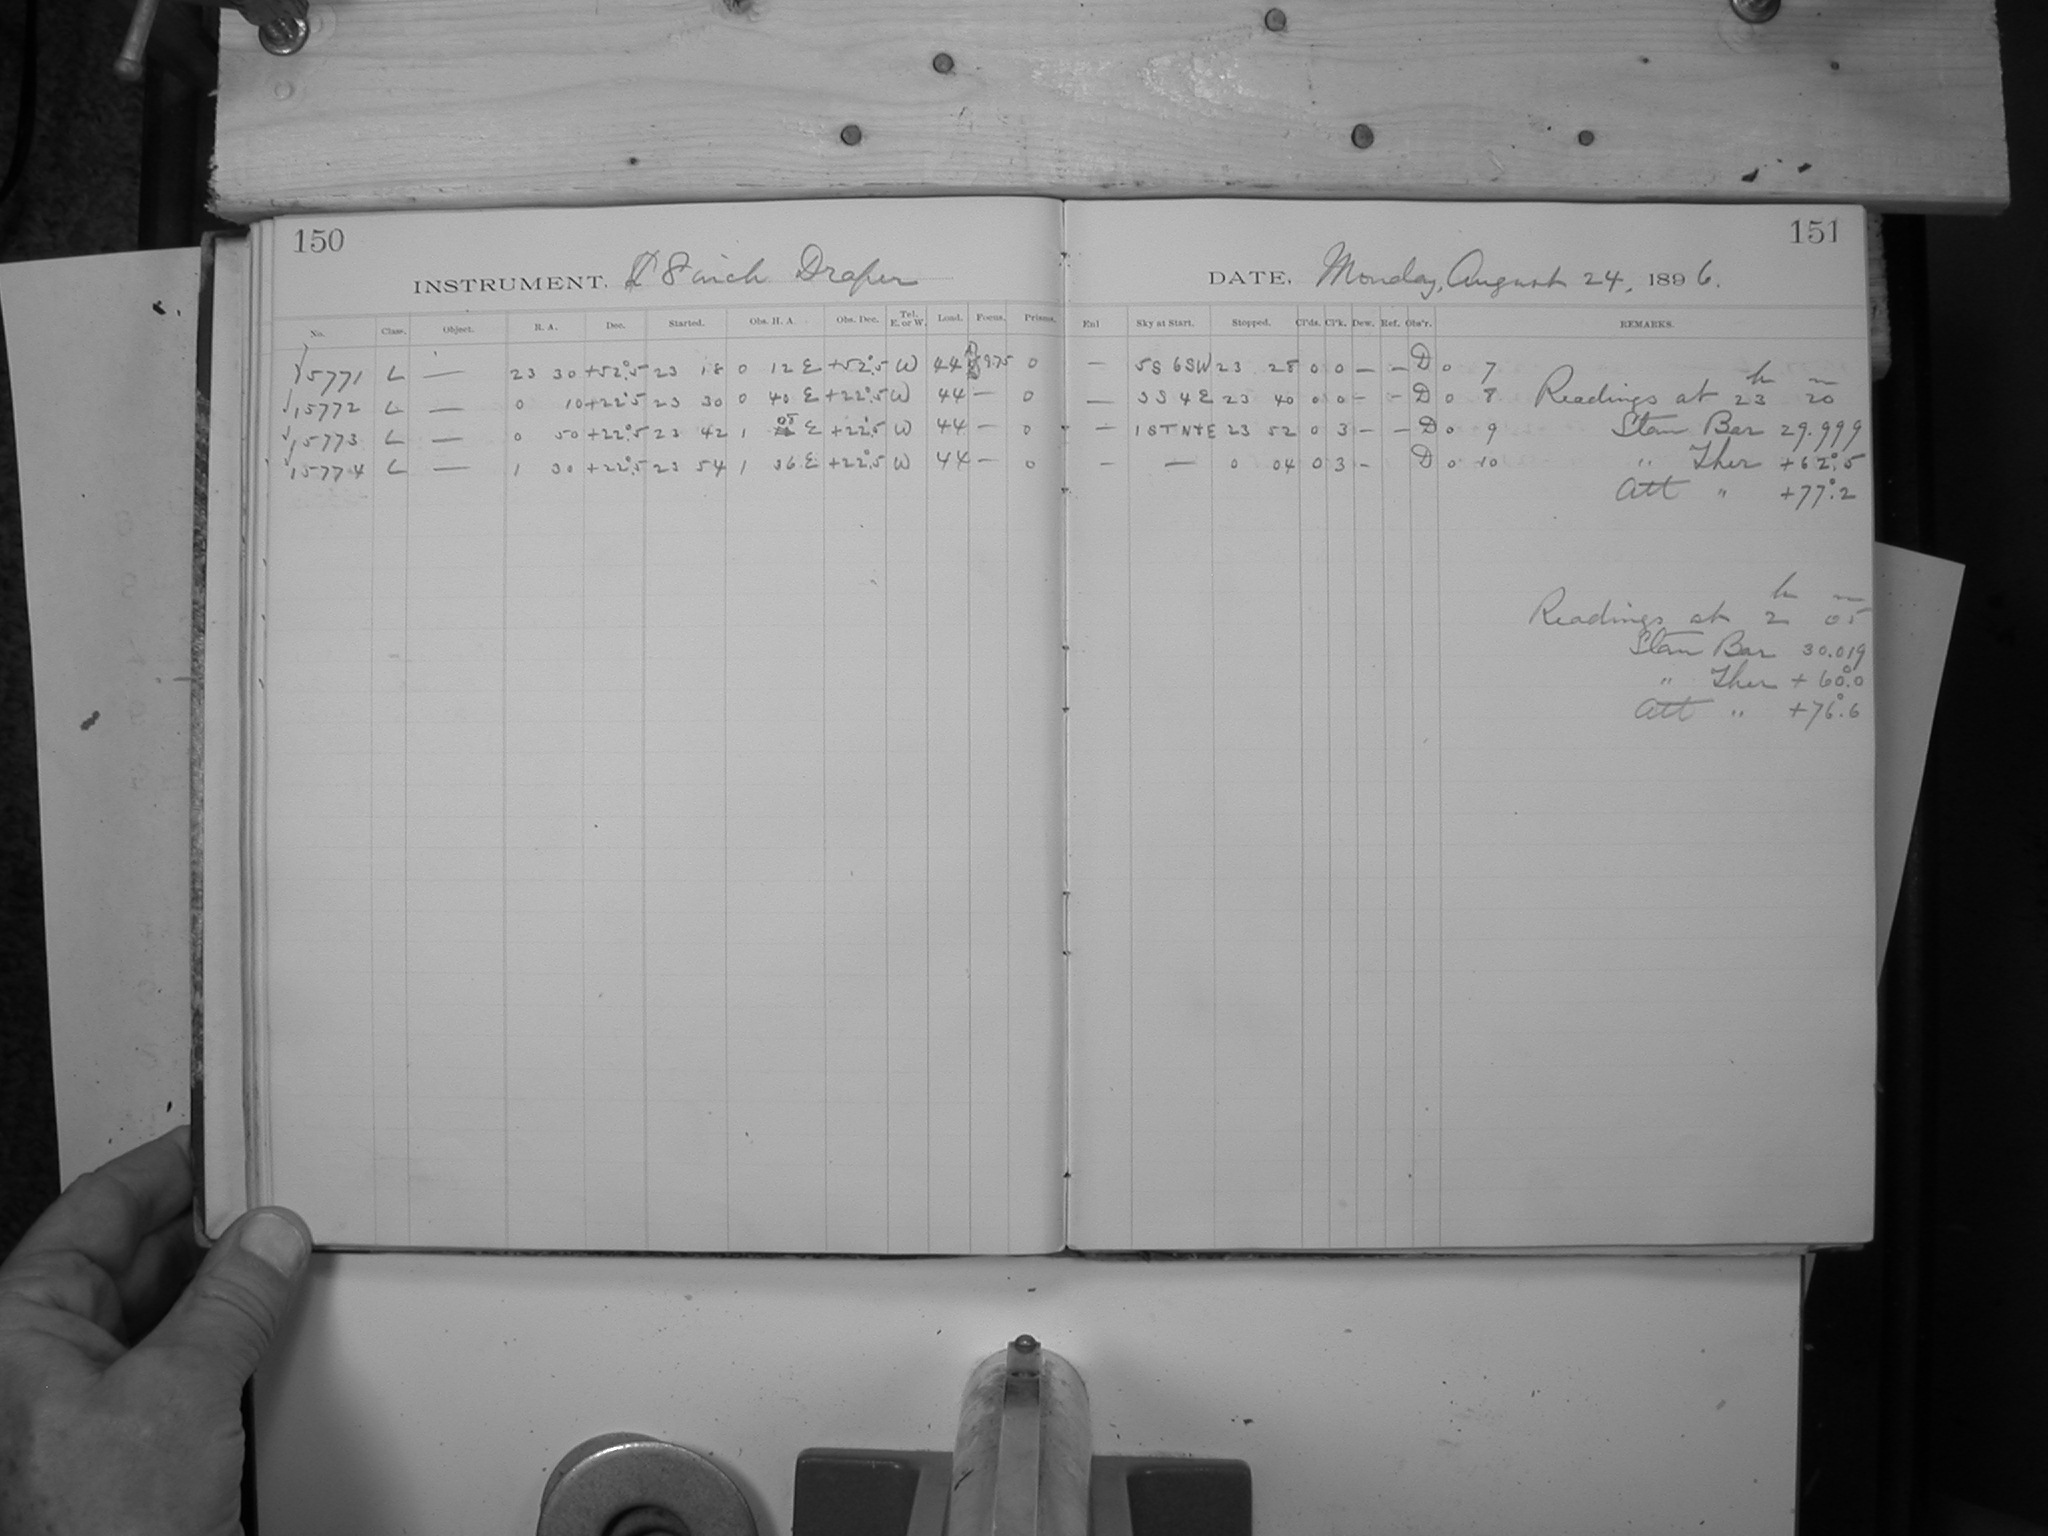 150
INSTRUMENT. 8 inch Draper
No. Class. Object. R. A. Dec. Started. Obs. H. A. Obs. Dec. Tel. E. or W. Load. Focus. Prisms.
15771 L — 23 30 +52°.5 23 18 0 12 E +52°.5 W 44 9.75 0
15772 L — 0 10 +22°.5 23 30 0 40 E +22°.5 W 44 — 0
15773 L — 0 50 +22°.5 23 42 1 05 E +22°.5 W 44 — 0
15774 L — 1 30 +22°.5 23 54 1 36 E +22°.5 W 44 — 0
151
DATE. Monday, August 24, 1896.
Enl Sky at Start. Stopped. Cl'ds. Cl'k. Dew. Ref. Obs'r. REMARKS.
— 5S 6SW 23 28 0 0 — — D 0 7
— 3S 4E 23 40 0 0 — — D 0 8
— 1STN4E 23 52 0 3 — — D 0 9
— — 0 04 0 3 — D 0 10
h m
Readings at 23 20
Stan Bar 29.999
" Ther +62°.5
Att " +77°.2
h m
Readings at 2 05
Stan Bar 30.019
" Ther +60°.0
Att " +76°.6